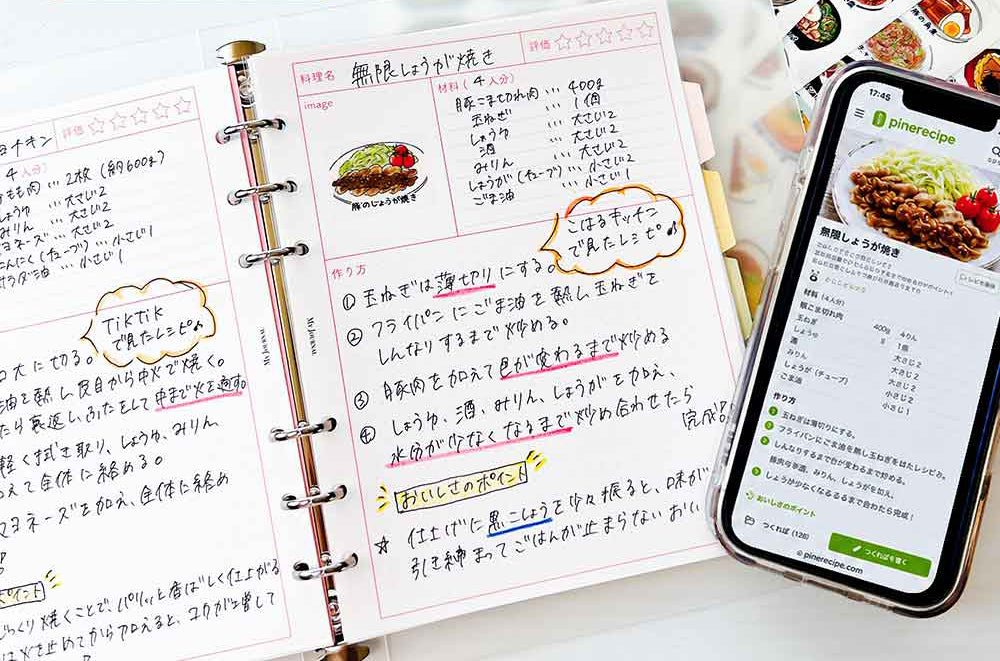 ョチキン
評価☆☆☆☆☆
4人分)
もも肉 … 2枚(約600g)
しょうゆ … 大さじ2
みりん … 大さじ2
マヨネーズ … 大さじ2
にんにく(チューブ) … 小さじ1
サラダ油 … 小さじ1
TikTik
で見たレシピ♪
口大に切る。
油を熱し皮目から中火で焼く。
たら裏返し、ふたをして中まで火を通す。
軽く拭き取り、しょうゆ、みりん
加えて全体に絡める。
マヨネーズを加え、全体に絡め
ポイント
じっくり焼くことで、パリッと香ばしく仕上がる
は火を止めてから加えると、コクが増して
My Journal
My Journal
料理名 無限しょうが焼き
評価☆☆☆☆☆
image
豚のしょうが焼き
材料(4人分)
豚こま切れ肉 … 400g
玉ねぎ … 1個
しょうゆ … 大さじ2
酒 … 大さじ2
みりん … 大さじ2
しょうが(チューブ) … 小さじ2
ごま油 … 小さじ1
こはるキッチン
で見たレシピ♪
作り方
① 玉ねぎは薄切りにする。
② フライパンにごま油を熱し玉ねぎを
しんなりするまで炒める。
③ 豚肉を加えて色が変わるまで炒める
④ しょうゆ、酒、みりん、しょうがを加え、
水分が少なくなるまで炒め合わせたら
完成!
おいしさのポイント
☆ 仕上げに黒こしょうを少々振ると、味が
引き締まってごはんが止まらないおい
豚の角煮
17:45
pinerecipe
無限しょうが焼き
材料(4人分)
豚こま切れ肉 400g
玉ねぎ 1個
しょうゆ 大さじ2
酒 大さじ2
みりん 大さじ2
しょうが(チューブ) 小さじ2
ごま油 小さじ1
作り方
玉ねぎは薄切りにする。
フライパンにごま油を熱し玉ねぎをはたレシピみ。
しんなりするまで台が変わるまで炒める。
豚肉な季酒、みりん、しょうがを加え、
しょうが少なくなるるまで合わたら完成!
おいしさのポイント
つくれぽ(128)
つくれぽを書く
pinerecipe.com